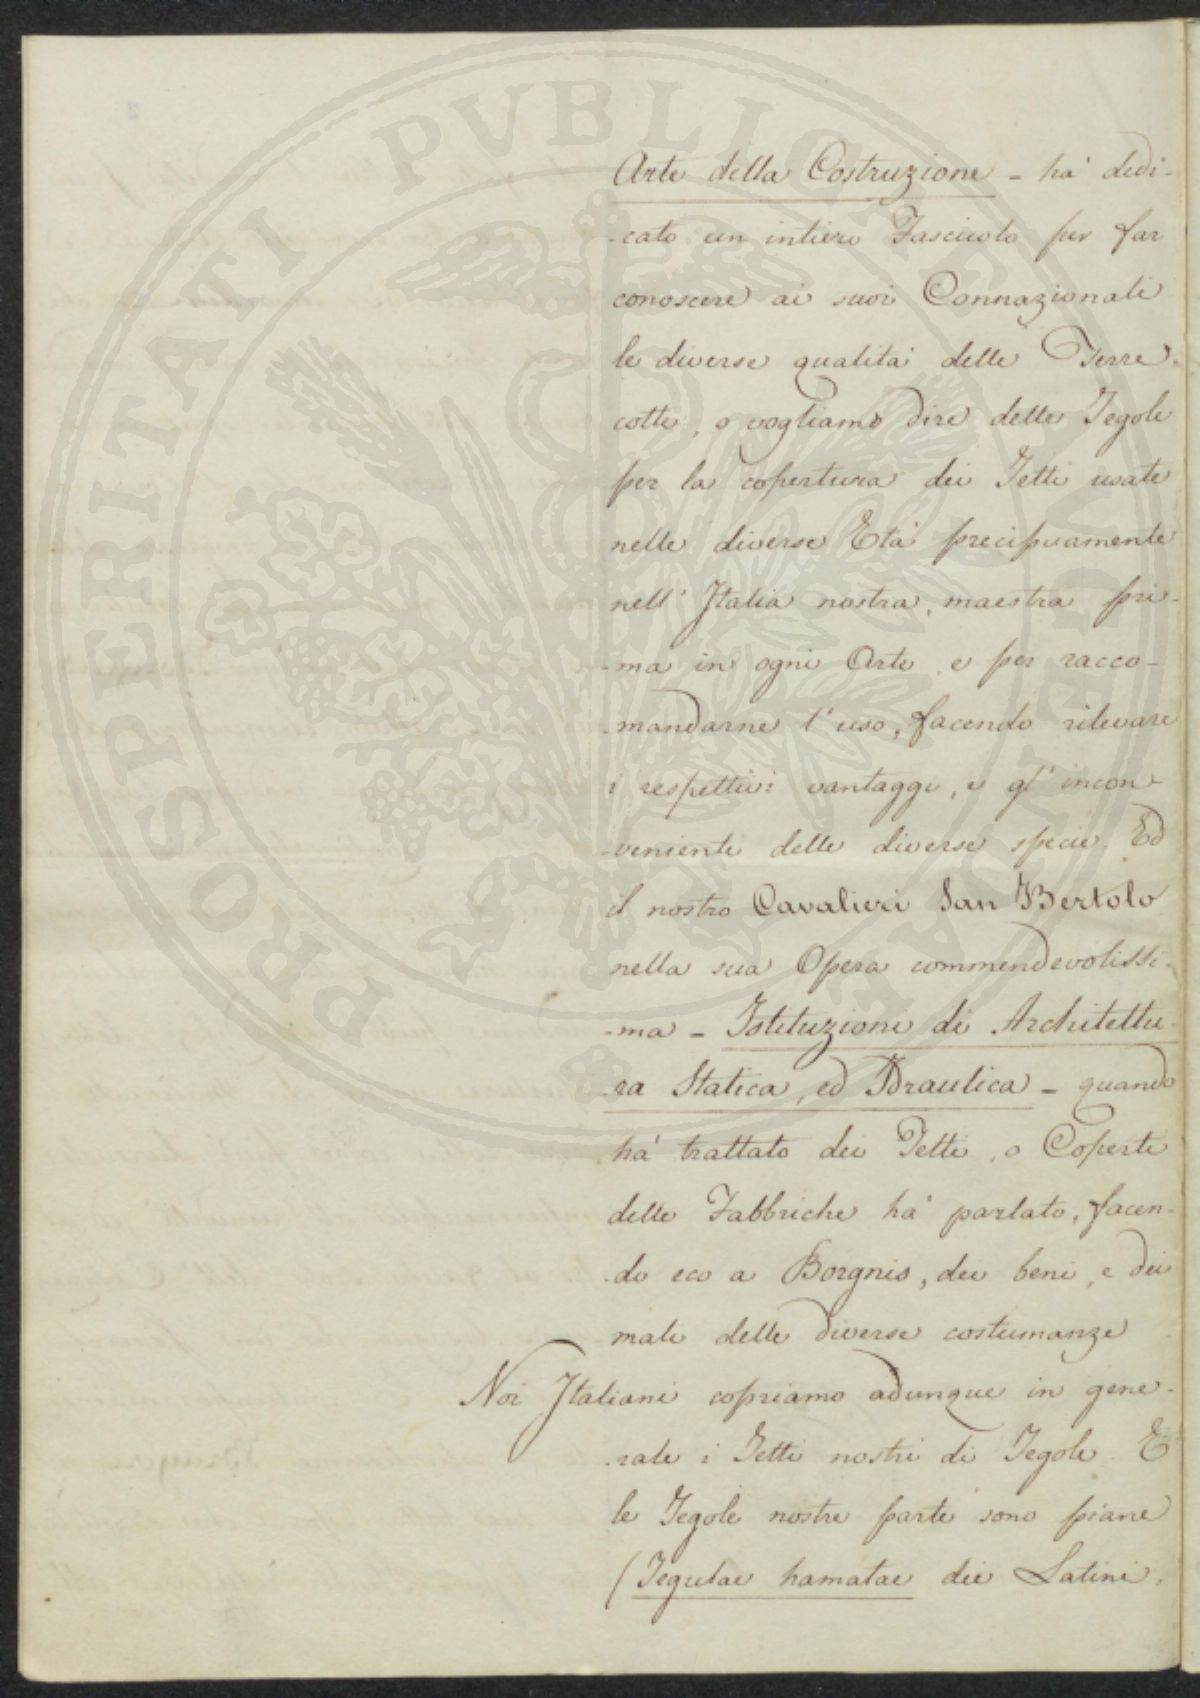 Arte della Costruzione - hà dedi-
-cato un intiero Fascicolo per far
conoscere ai suoi Connazionali
le diverse qualità delle Terre
cotte, o vogliamo dire delle Tegole
per la copertura dei Tetti usate
nelle diverse Età precipuamente
nell' Italia nostra, maestra pri-
-ma in ogni Arte, e per racco-
-mandarne l'uso, facendo rilevare
i respettivi vantaggi, e gl' incon-
-venienti delle diverse specie. Ed
il nostro Cavalieri San Bertolo
nella sua Opera commendevolissi-
-ma - Istituzioni di Architettu-
-ra Statica, ed Idraulica - quando
hà trattato dei Tetti, o Coperti
delle Fabbriche hà parlato, facen-
-do eco a Borgnis, dei beni, e dei
mali delle diverse costumanze
Noi Italiani copriamo adunque in gene-
-rale i Tetti nostri di Tegole. E
le Tegole nostre parte sono piane
(Tegulae hamatae dei Latini,
PROSPERITATI PVBLICAE AVGENDAE